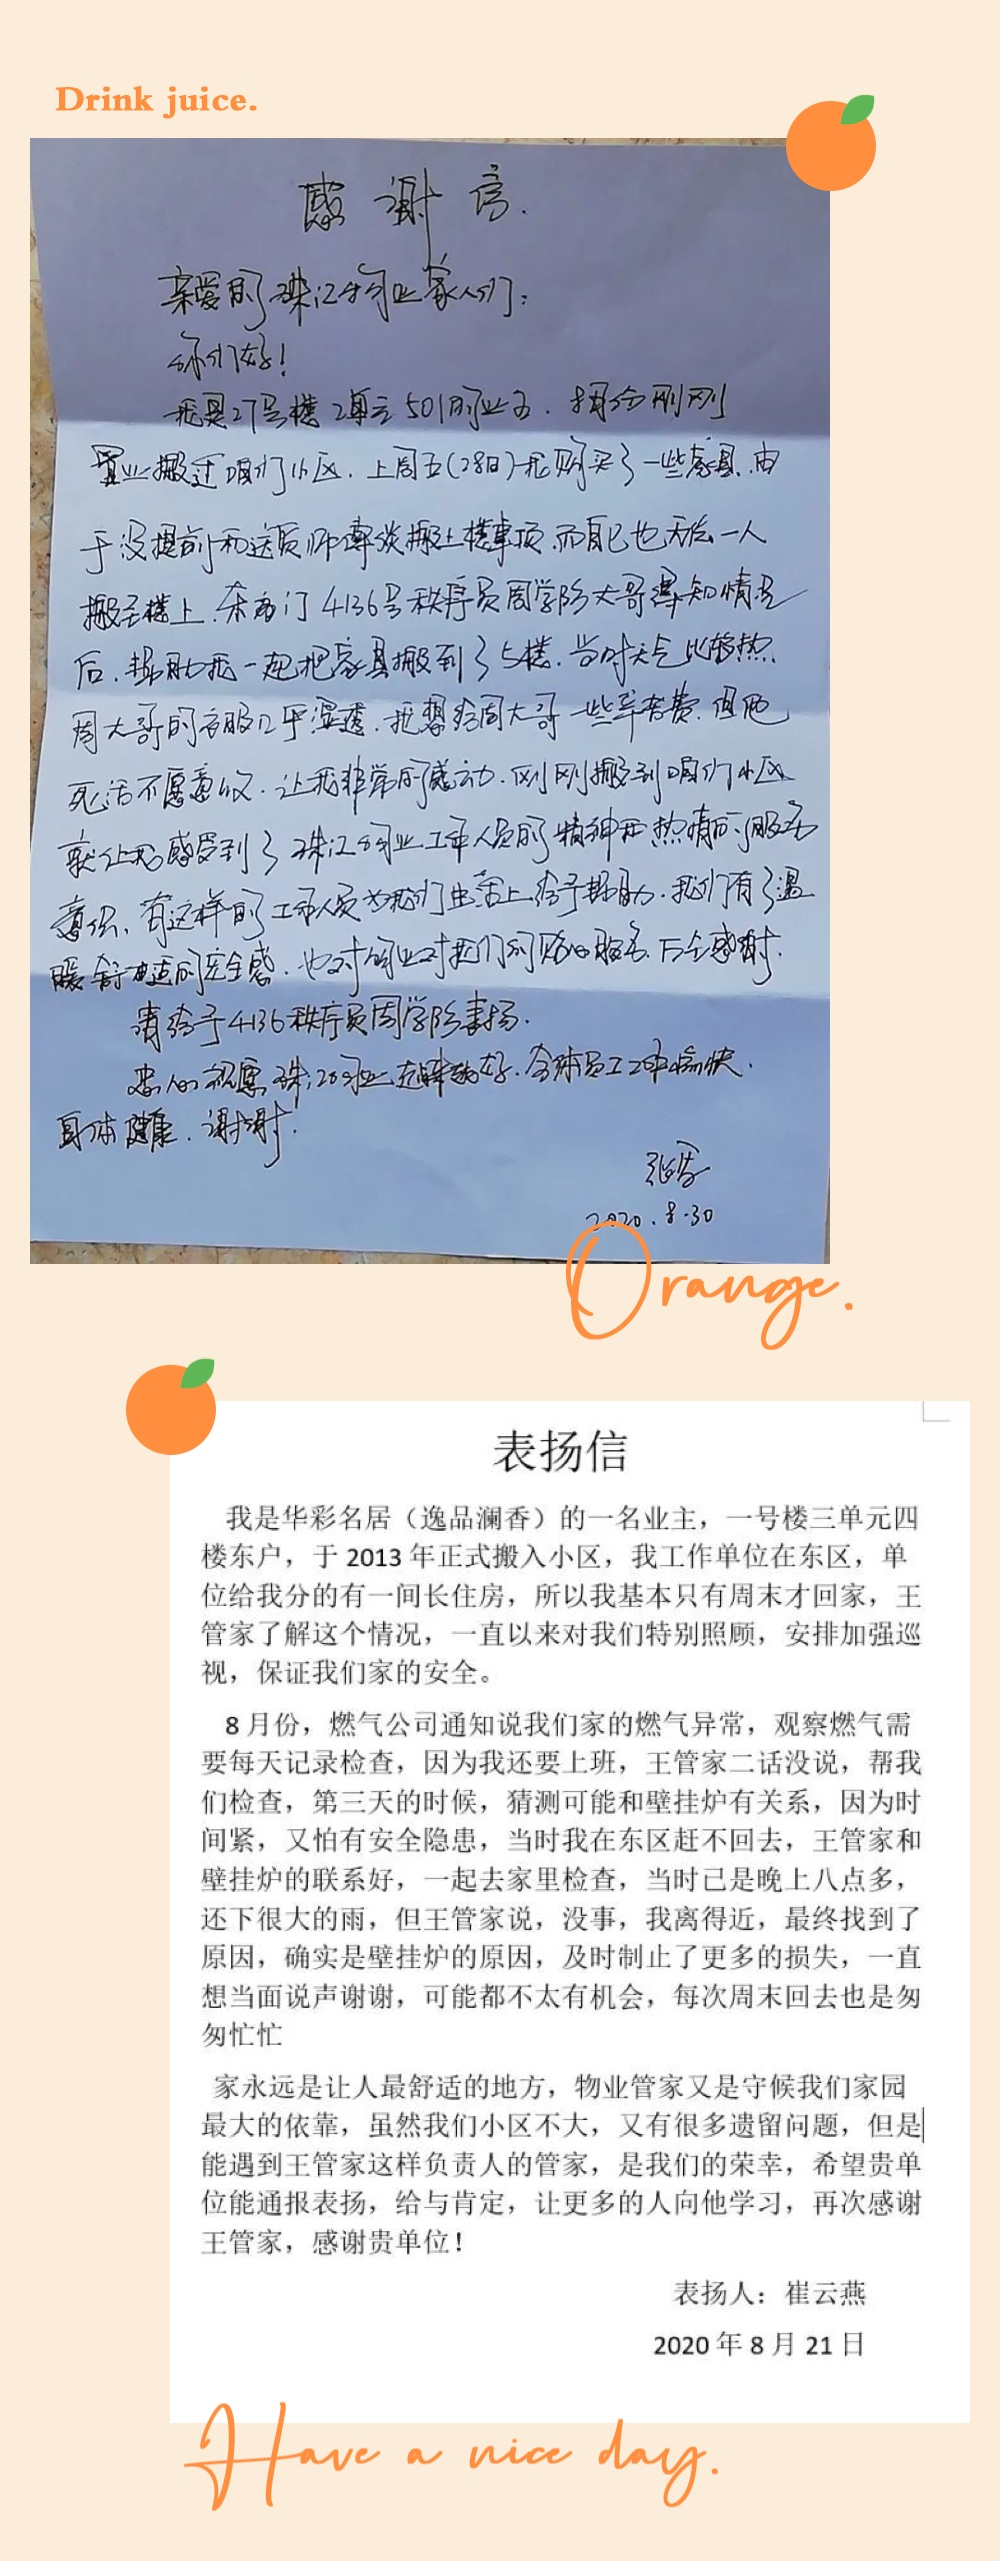 Drink juice.
感谢信.
亲爱的珠江物业家人们：
你们好！
我是27号楼2单元501的业主.刚刚
置业搬迁咱们小区.上周五(28日)我购买了一些家具.由
于没提前和送货师傅谈搬上楼事项.而自己也无法一人
搬至楼上.东南门4136号秩序员周学阶大哥得知情况
后.帮助我一起把家具搬到了5楼.当时天气比较热.
周大哥的衣服几乎湿透.我想给周大哥一些辛苦费.但他
死活不愿意收.让我非常的感动.刚刚搬到咱们小区
就让我感受到了珠江物业工作人员的精神和热情的服务
意识.有这样的工作人员为我们生活上给予帮助.我们有了温
暖舒适的安全感.也对物业对我们的贴心服务.万全感谢.
请给予4136秩序员周学阶表扬.
祝愿珠江物业越来越好.全体员工工作愉快.
身体健康.谢谢！
2020.8.30
Orange.
表扬信
我是华彩名居（逸品澜香）的一名业主，一号楼三单元四
楼东户，于 2013 年正式搬入小区，我工作单位在东区，单
位给我分的有一间长住房，所以我基本只有周末才回家，王
管家了解这个情况，一直以来对我们特别照顾，安排加强巡
视，保证我们家的安全。
8 月份，燃气公司通知说我们家的燃气异常，观察燃气需
要每天记录检查，因为我还要上班，王管家二话没说，帮我
们检查，第三天的时候，猜测可能和壁挂炉有关系，因为时
间紧，又怕有安全隐患，当时我在东区赶不回去，王管家和
壁挂炉的联系好，一起去家里检查，当时已是晚上八点多，
还下很大的雨，但王管家说，没事，我离得近，最终找到了
原因，确实是壁挂炉的原因，及时制止了更多的损失，一直
想当面说声谢谢，可能都不太有机会，每次周末回去也是匆
匆忙忙
家永远是让人最舒适的地方，物业管家又是守候我们家园
最大的依靠，虽然我们小区不大，又有很多遗留问题，但是
能遇到王管家这样负责人的管家，是我们的荣幸，希望贵单
位能通报表扬，给与肯定，让更多的人向他学习，再次感谢
王管家，感谢贵单位！
表扬人：崔云燕
2020 年 8 月 21 日
Have a nice day.